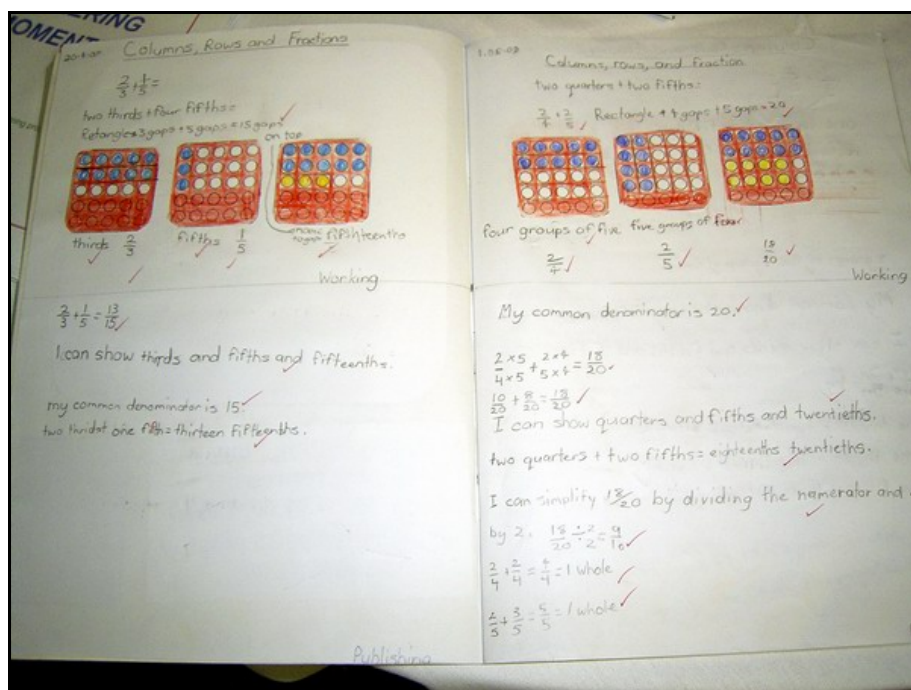 ERING
MOMENT
Columns, Rows and Fractions
2/3 + 1/5 =
two thirds + four fifths =
Retangle 3 gaps + 5 gaps = 15 gaps
on top
thirds 2/3
fifths 1/5
fifhteenths
Working
2/3 + 1/5 = 13/15
I can show thirds and fifths and fifteenths.
my common denominator is 15.
two thridst one fifth = thirteen fifteenths.
Publishing
Columns, rows, and fraction
two quarters + two fifths =
2/4 + 2/5 Rectangle 4 gaps + 5 gaps = 20
four groups of five five groups of four
2/4
2/5
18/20
Working
My common denominator is 20.
2 × 5/4 × 5 + 2 × 4/5 × 4 = 18/20
10/20 + 8/20 = 18/20
I can show quarters and fifths and twentieths.
two quarters + two fifths = eighteenths twentieths.
I can simplify 18/20 by dividing the namerator and
by 2. 18/20 ÷ 2/2 = 9/10
2/4 + 2/4 = 4/4 = 1 whole
2/5 + 3/5 = 5/5 = 1 whole